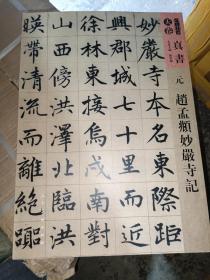 真書
元 趙孟頫妙嚴寺記
妙嚴寺本名東際距
興郡城七十里而近
徐林東接烏戍南對
山西傍洪澤北臨洪
暎帶清流而離絕